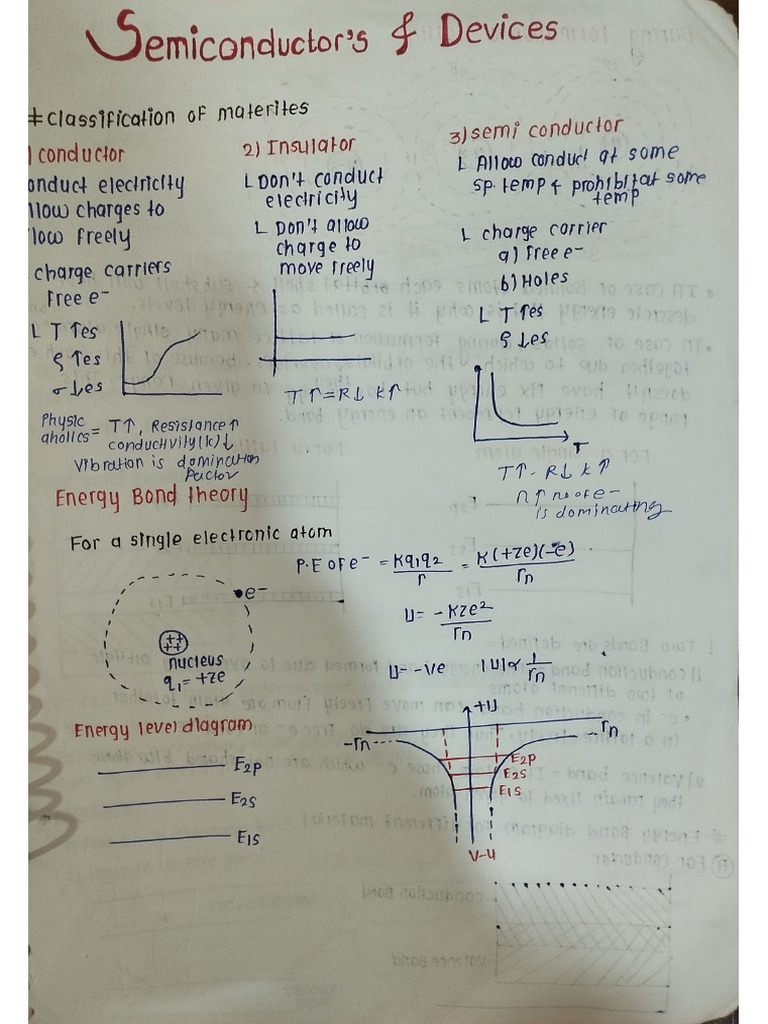 Semiconductor's & Devices
# Classification of materites
) conductor
onduct electricity
llow charges to
low freely
charge carriers
Free e-
L T ↑es
ρ ↑es
σ ↓es
Physic
aholics = T↑, Resistance↑
conductivity(k)↓
Vibration is domination
factor
2) Insulator
L Don't conduct
electricity
L Don't allow
charge to
move freely
T↑=R↓ K↑
3) semi conductor
L Allow conduct at some
sp. temp & prohibit at some
temp
L charge carrier
a) Free e-
b) Holes
L T ↑es
ρ ↓es
T
T↑ - R↓ K↑
n↑ no of e-
is dominating
Energy Bond theory
For a single electronic atom
e-
++
++
nucleus
q₁=+ze
P.E of e- = Kq₁q₂/r = K(+ze)(-e)/rn
U = -Kze²/rn
U = -ve |U| ∝ 1/rn
Energy level diagram
E2p
E2s
E1s
+U
-rn
rn
E2p
E2s
E1s
V-U